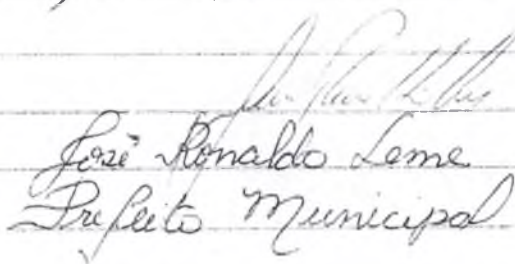 José Ronaldo Leme
Prefeito Municipal